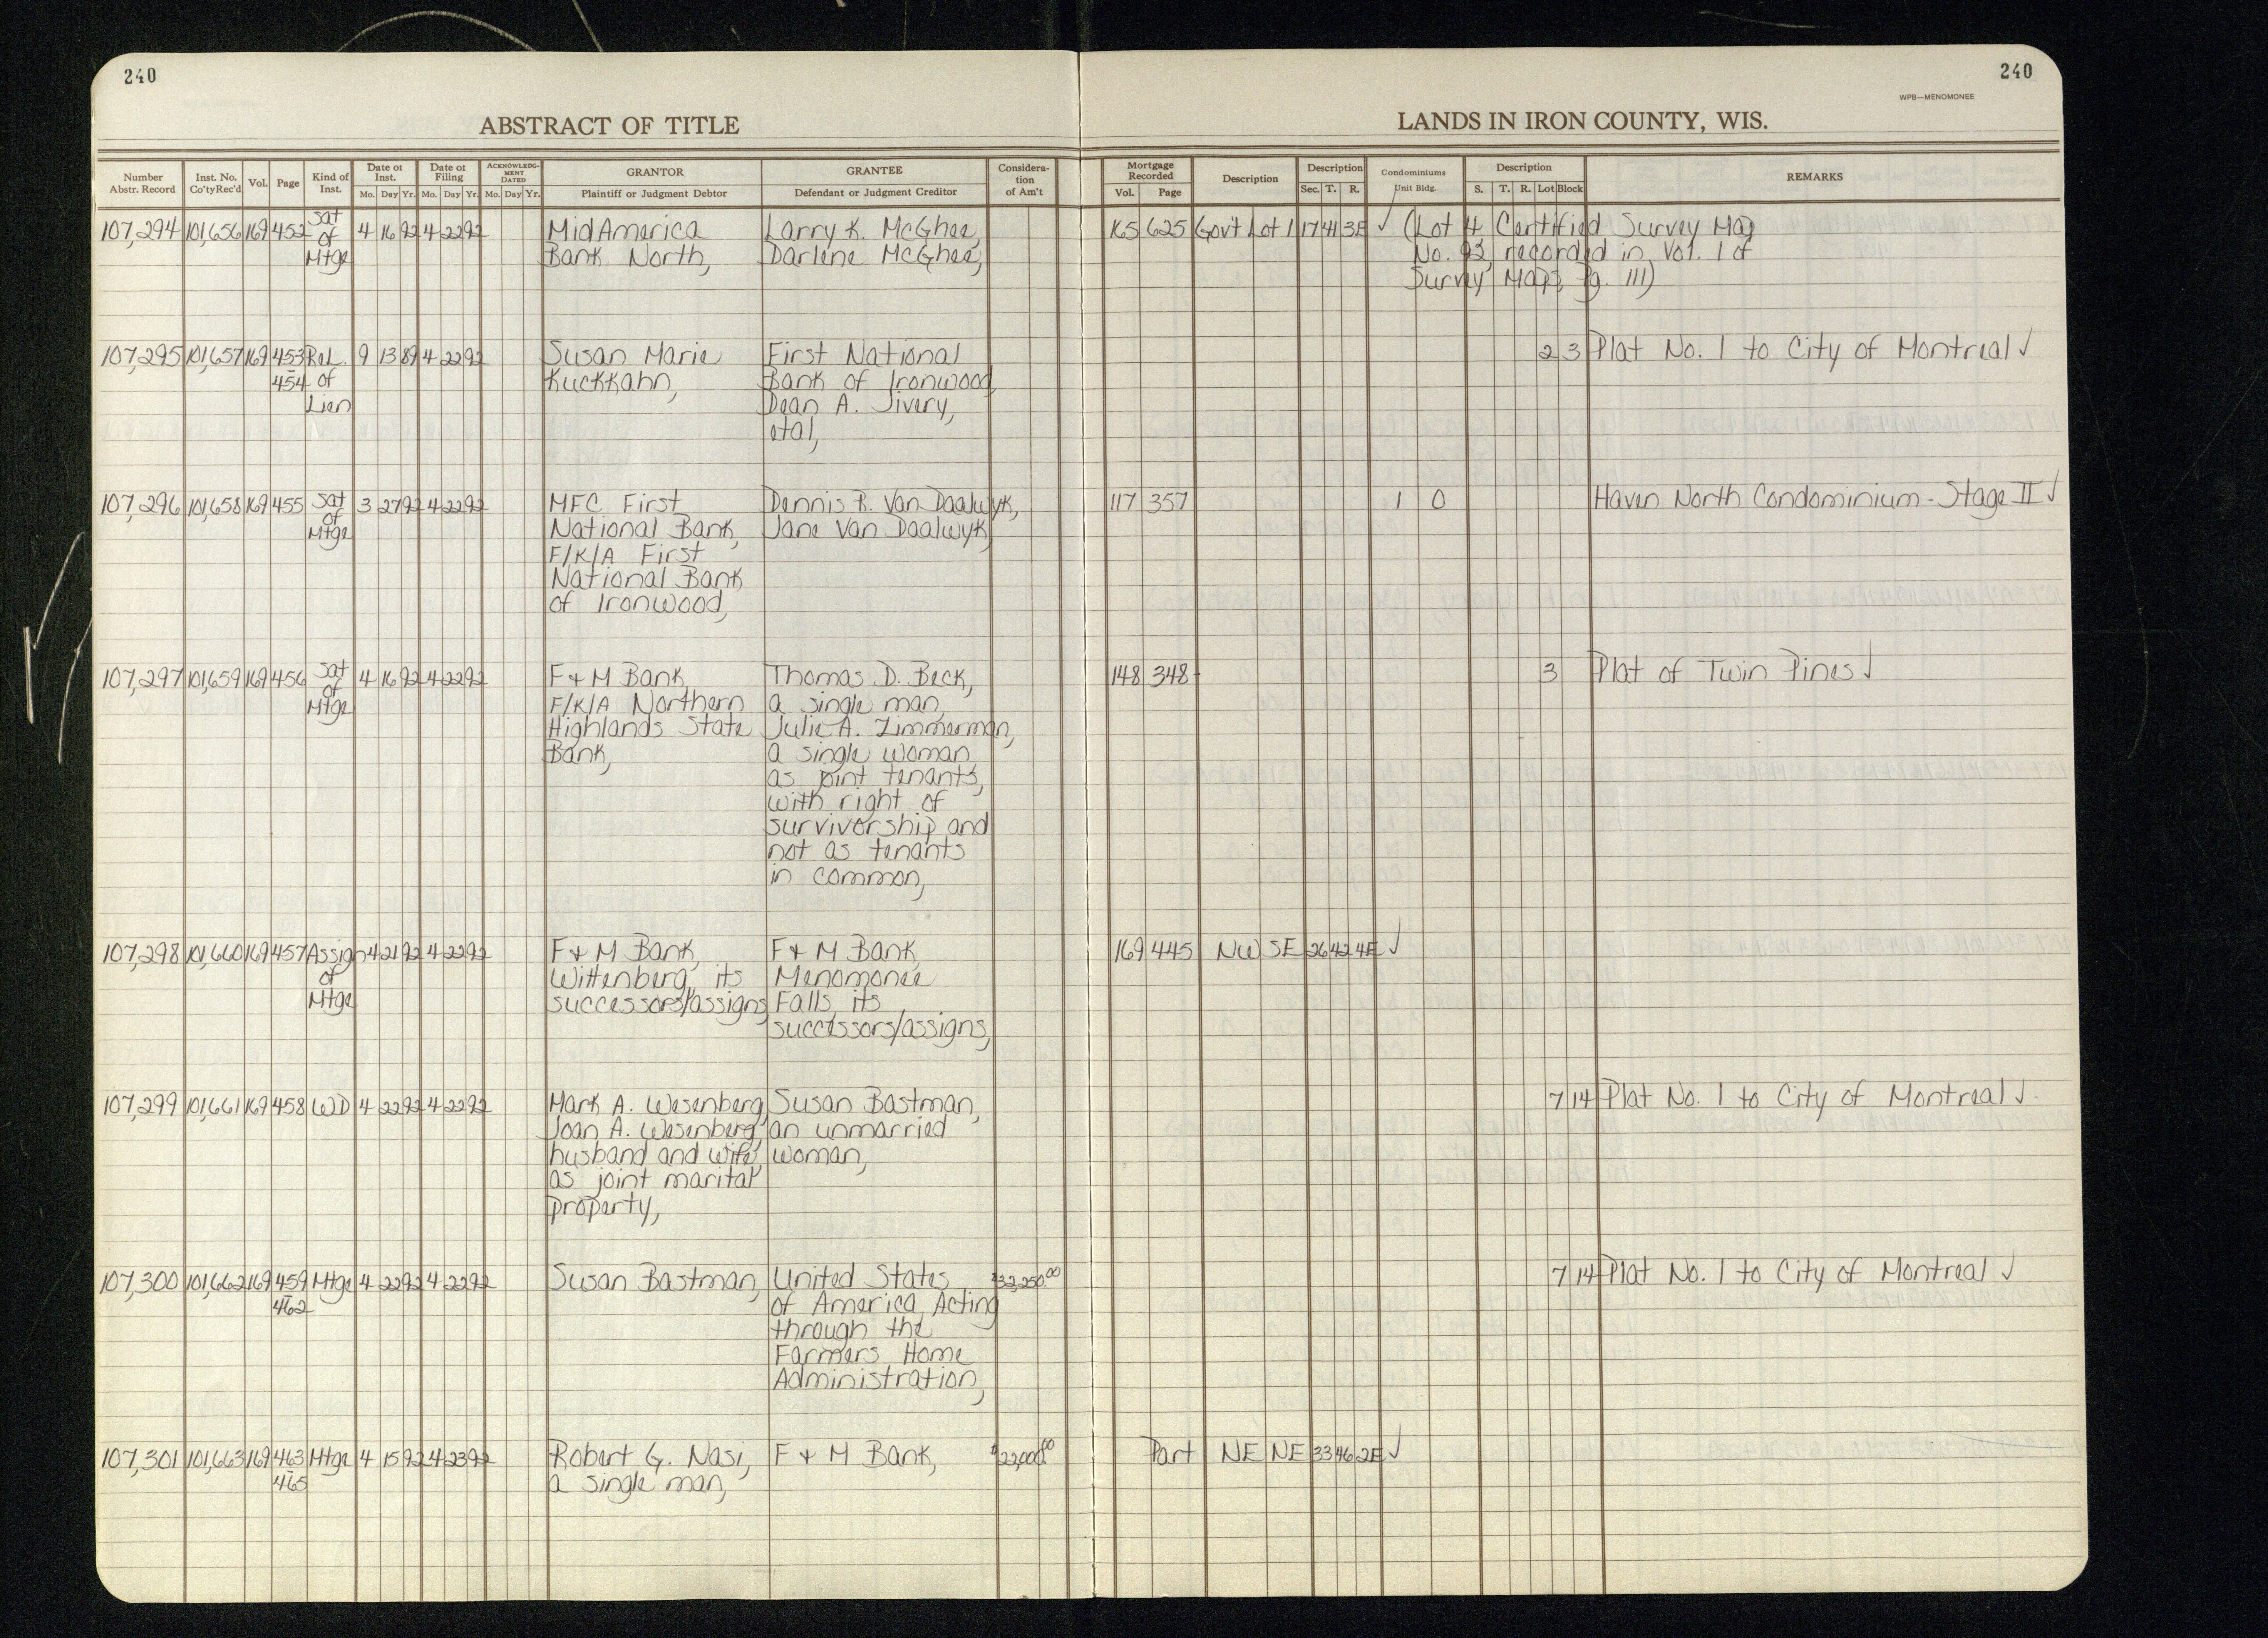 240
240
WPB—MENOMONEE
ABSTRACT OF TITLE
LANDS IN IRON COUNTY, WIS.
Number Abstr. Record | Inst. No. Co'ty Rec'd | Vol. | Page | Kind of Inst. | Date of Inst. Mo. Day Yr. | Date of Filing Mo. Day Yr. | ACKNOWLEDGMENT DATED Mo. Day Yr. | GRANTOR Plaintiff or Judgment Debtor | GRANTEE Defendant or Judgment Creditor | Consideration of Am't | Mortgage Recorded Vol. Page | Description | Description Sec. T. R. | Condominiums Unit Bldg. | Description S. T. R. Lot Block | REMARKS
107,294 101,656 169 452 Sat 4 16 92 4 22 92 MidAmerica Larry K. McGhee, 165 625 Gov't Lot 1 17 41 3E ✓ (Lot 4 Certified Survey Map
of Bank North, Darlene McGhee, No. 93, recorded in Vol. 1 of
Mtge Survey Maps, Pg. 111)
107,295 101,657 169 453 Rel. 9 13 89 4 22 92 Susan Marie First National 2 3 Plat No. 1 to City of Montreal ✓
-454 of Kuckkahn, Bank of Ironwood,
Lien Dean A. Jivery,
etal,
107,296 101,658 169 455 Sat 3 27 92 4 22 92 MFC First Dennis R. Van Daalwyk, 117 357 1 O Haven North Condominium - Stage II ✓
of National Bank, Jane Van Daalwyk,
Mtge F/K/A First
National Bank
of Ironwood,
107,297 101,659 169 456 Sat 4 16 92 4 22 92 F & M Bank, Thomas D. Beck, 148 348 3 Plat of Twin Pines ✓
of F/K/A Northern a single man,
Mtge Highlands State Julie A. Zimmerman,
Bank, a single woman
as joint tenants,
with right of
survivorship and
not as tenants
in common,
107,298 101,660 169 457 Assign 4 21 92 4 22 92 F & M Bank, F & M Bank, 169 445 NW SE 26 42 4E ✓
of Wittenberg, its Menomonee
Mtge successors/assigns, Falls, its
successors/assigns,
107,299 101,661 169 458 WD 4 22 92 4 22 92 Mark A. Wesenberg, Susan Bastman, 7 14 Plat No. 1 to City of Montreal ✓
Joan A. Wesenberg, an unmarried
husband and wife, woman,
as joint marital
property,
107,300 101,662 169 459 Mtge 4 22 92 4 22 92 Susan Bastman, United States $32,250.00 7 14 Plat No. 1 to City of Montreal ✓
-462 of America, Acting
through the
Farmers Home
Administration,
107,301 101,663 169 463 Mtge 4 15 92 4 23 92 Robert G. Nasi, F & M Bank, $22,000.00 Part NE NE 33 46 2E ✓
-465 a single man,